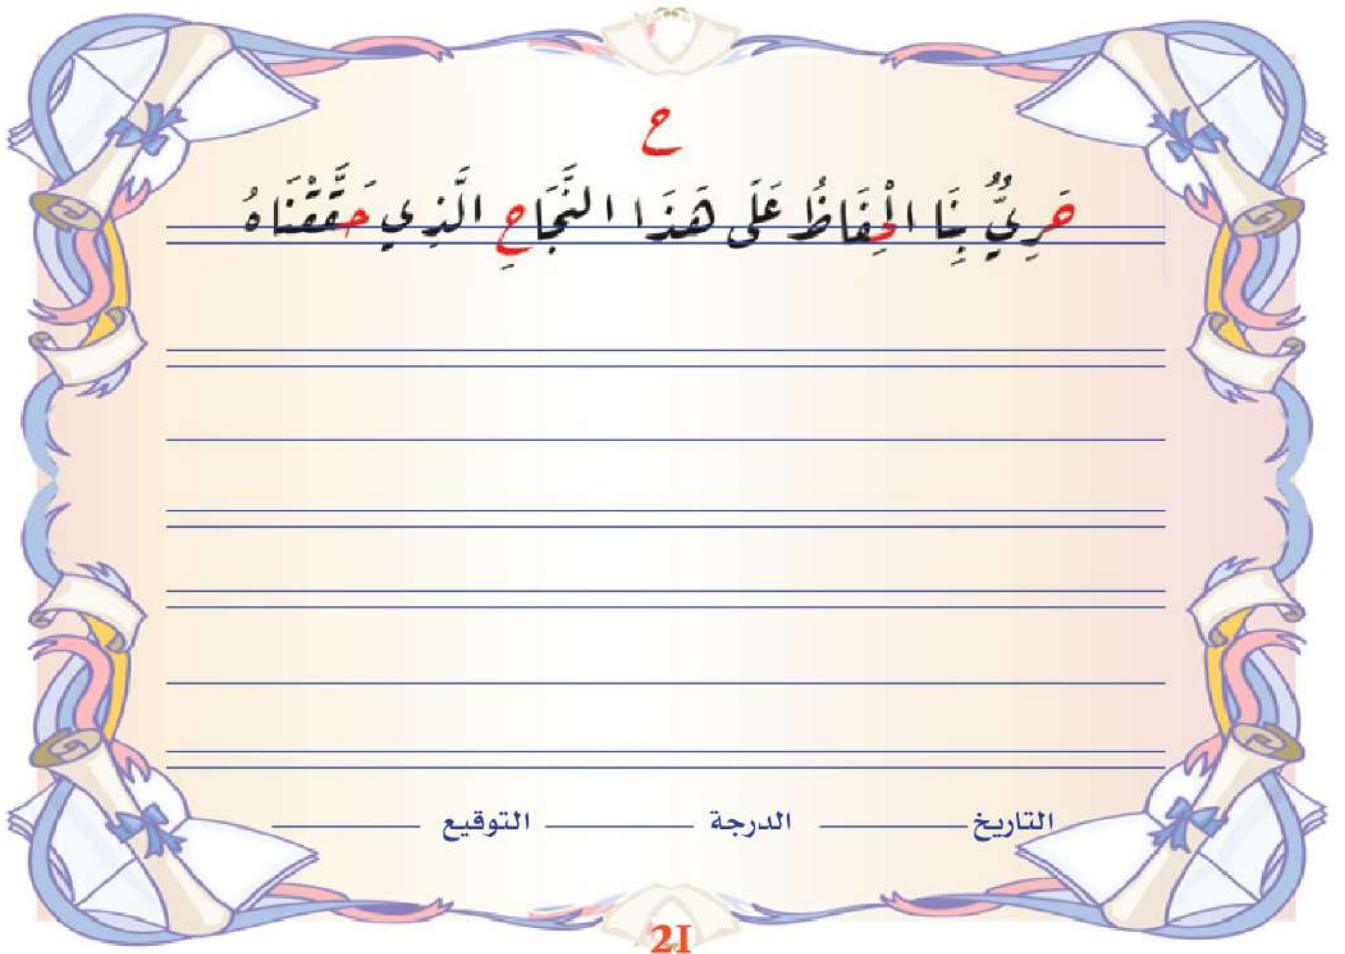 ح
حَرِيٌّ بِنَا الْحِفَاظُ عَلَى هَذَا النَّجَاحِ الَّذِي حَقَّقْنَاهُ
التاريخ الدرجة التوقيع
21